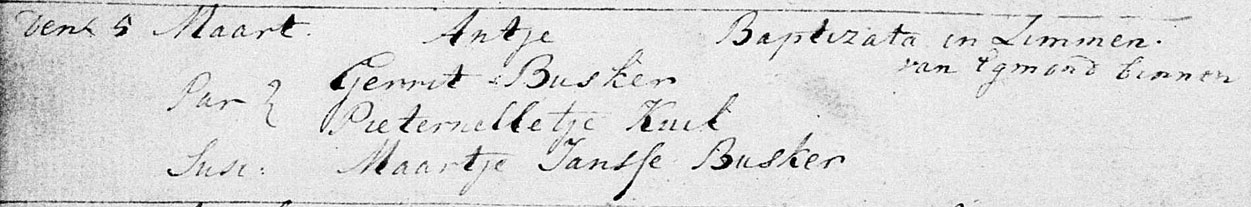 Den 5 Maart. Antje Baptizata in Limmen.
van Egmond binnen
Par Gerrit Busker
Pieternelletje Kuil
Susc: Maartje Jansse Busker